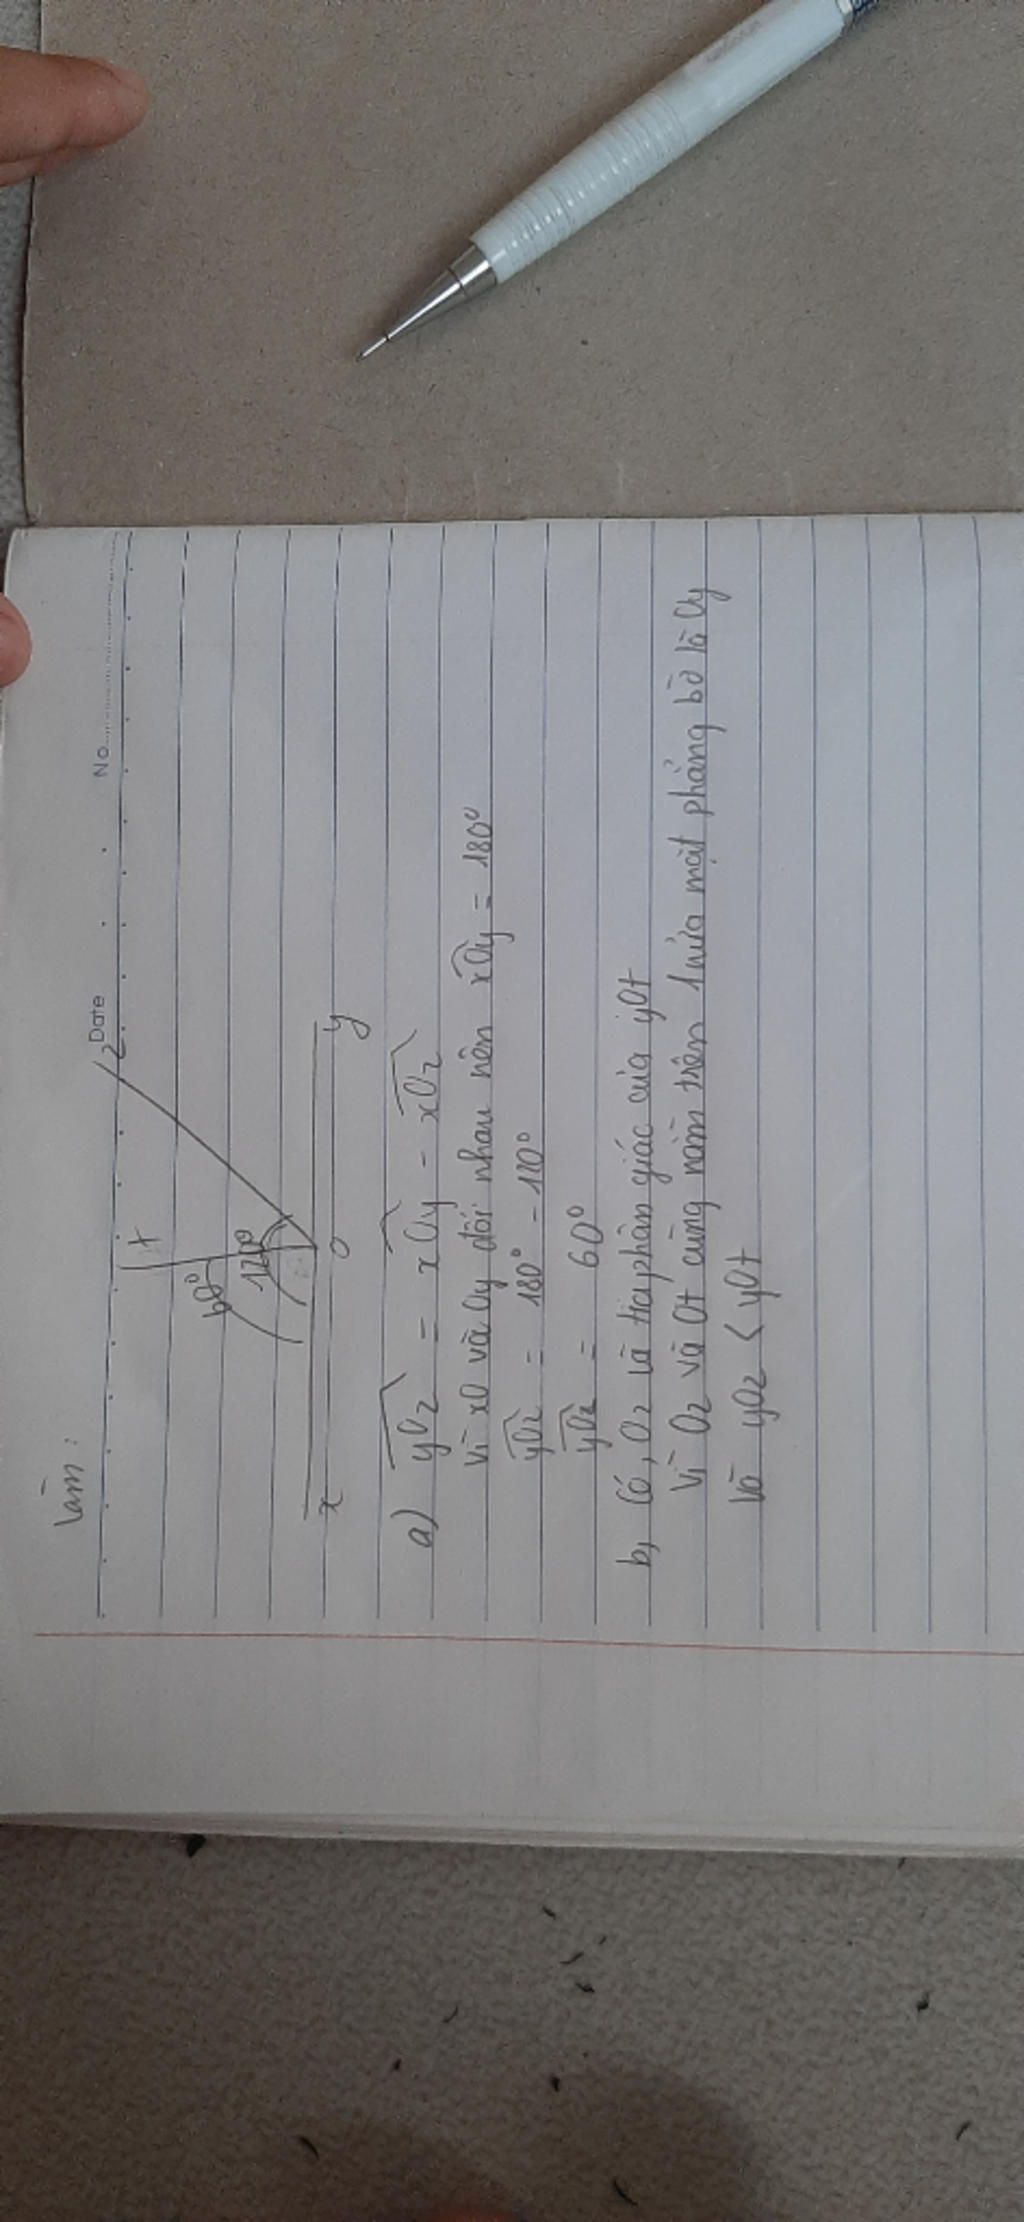 No
Date
Làm:
x O y z t
60°
120°
a) yOz = xOy - xOz
Vì xO và Oy đối nhau nên xOy = 180°
yOz = 180° - 120°
yOz = 60°
b, Có, Oz là tia phân giác của yOt
Vì Oz và Ot cùng nằm trên 1 nửa mặt phẳng bờ là Oy
Và yOz < yOt